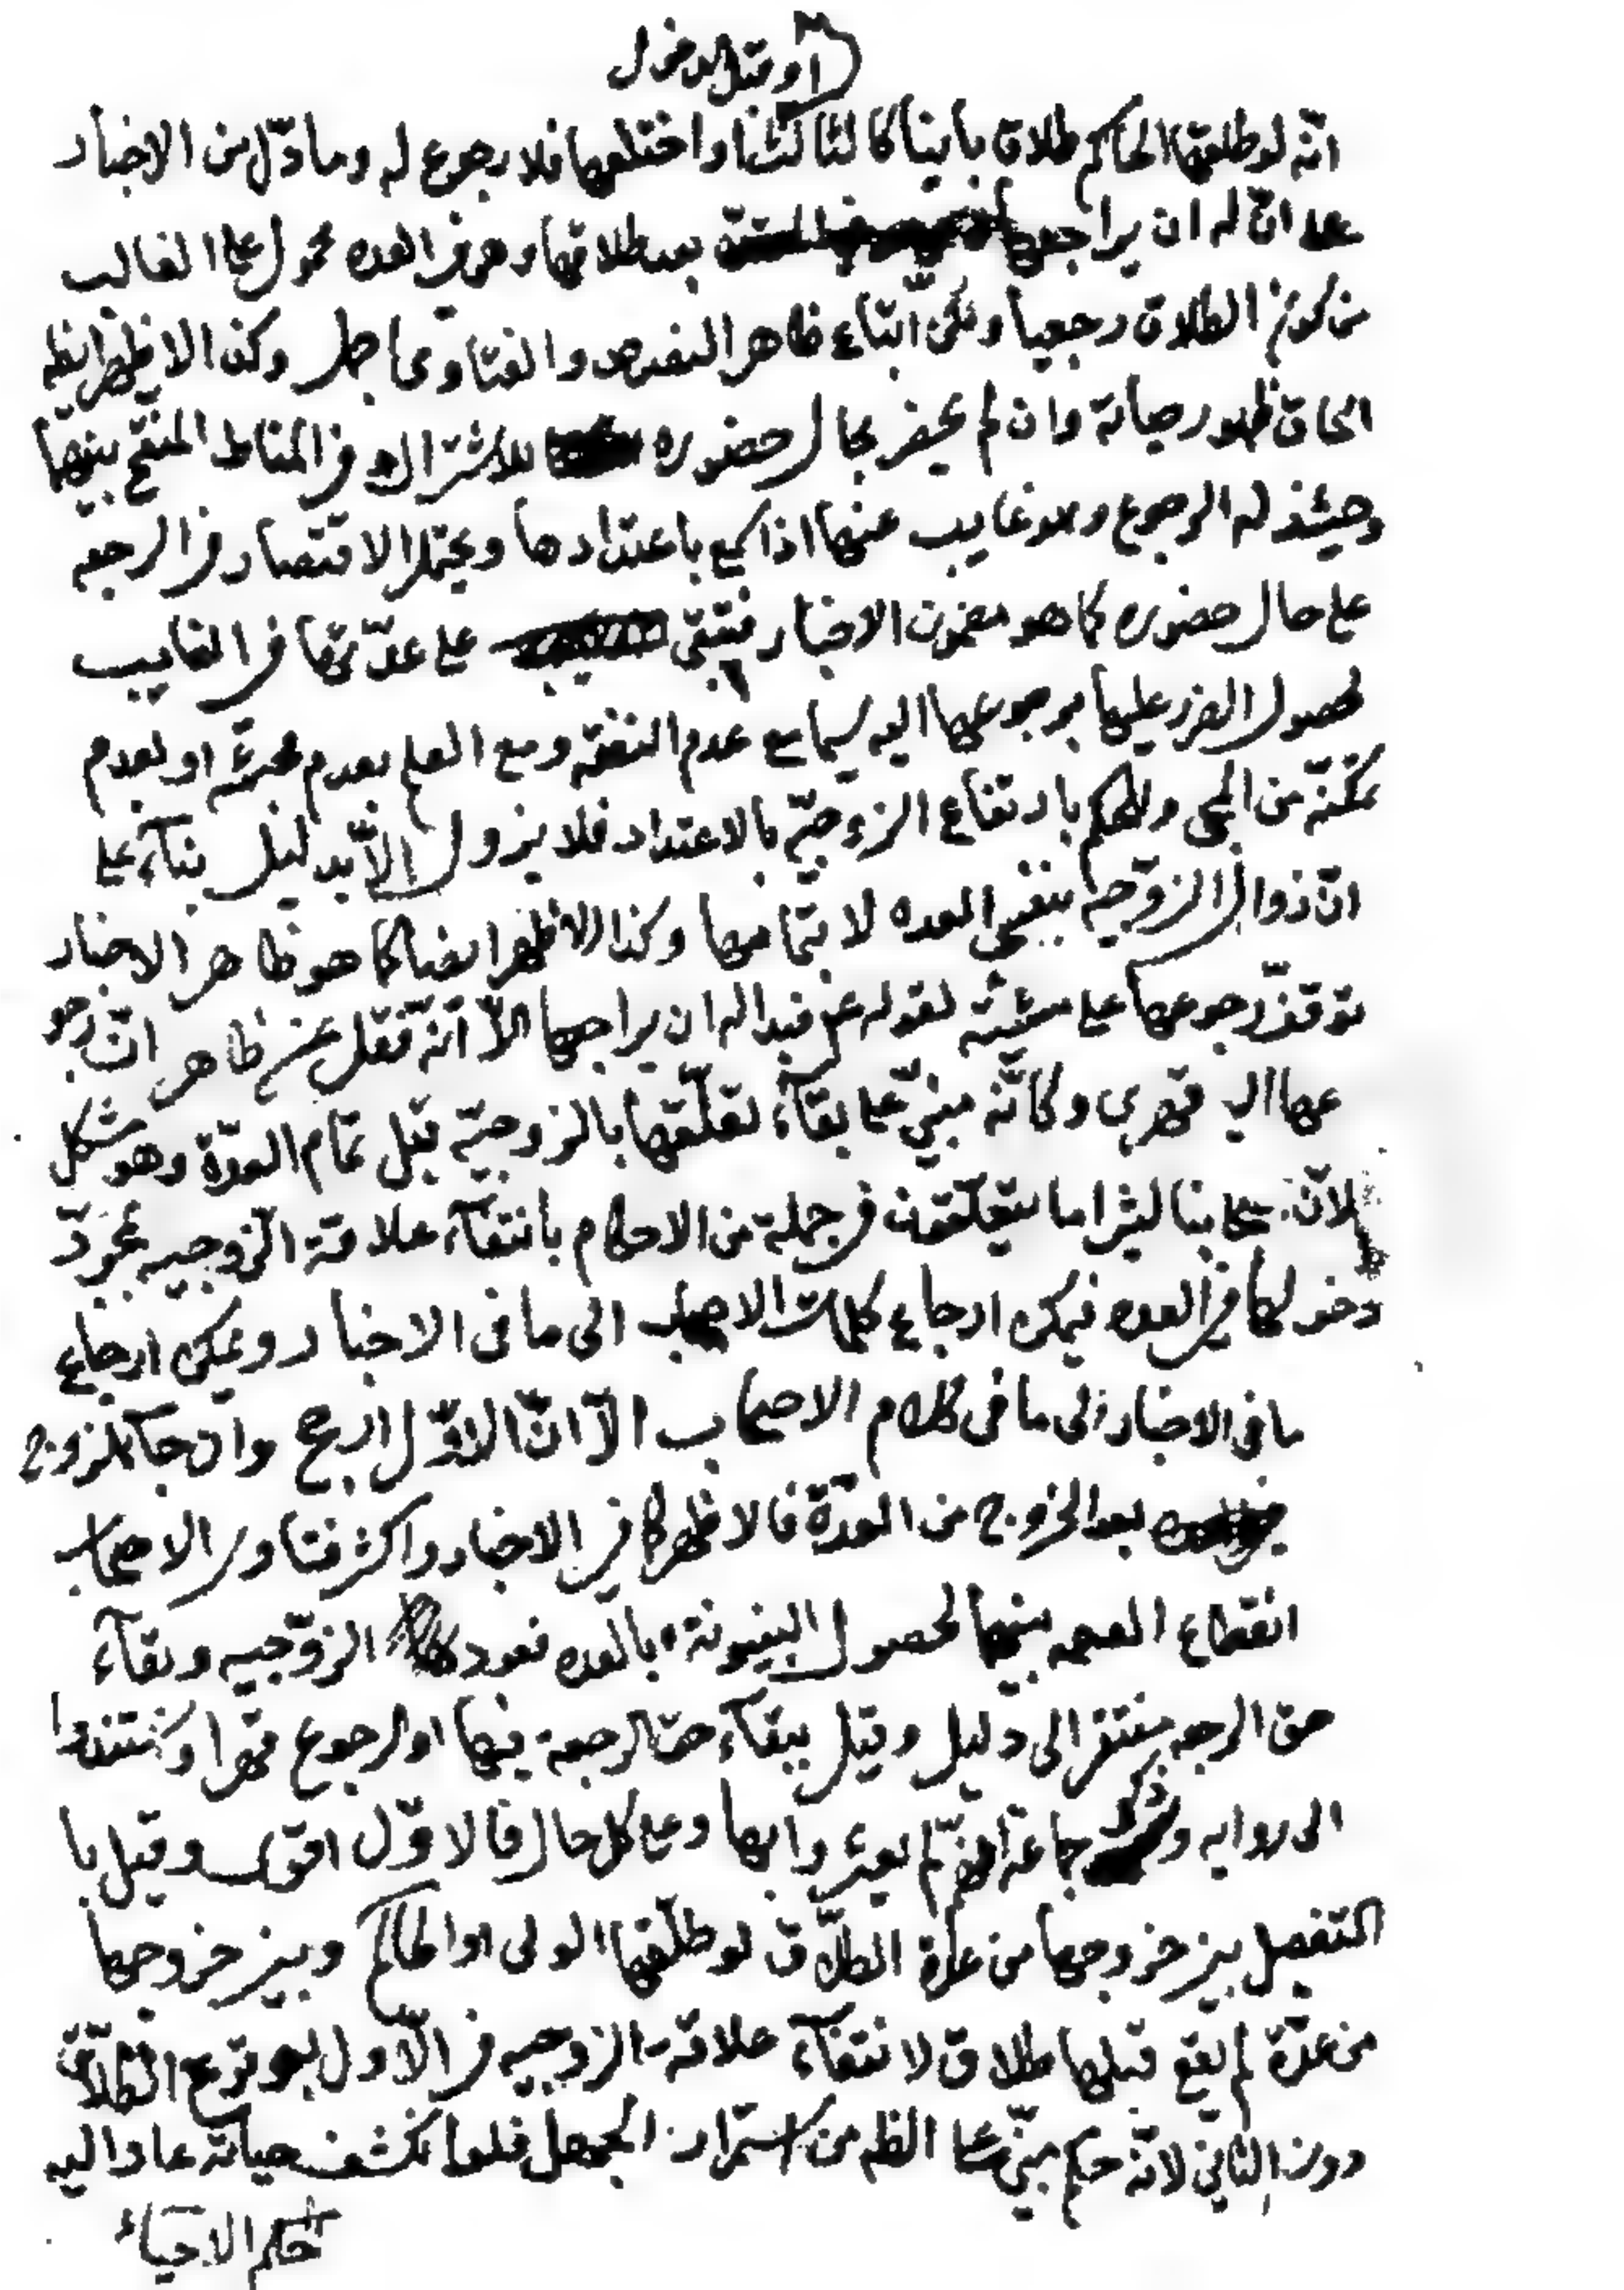 او قبل الدخول
انّه لو طلقها الحاكم طلاق باينا كالثالث او اختلعها فلا رجوع له وما دلّ من الاخبار
على انّ له ان يراجعها بعد طلاقها وهو في العده محمول على الغالب
من كون الطلاق رجعيا ولكن اتباع ظاهر النصوص والفتاوى حاصل وكذا الاظهر
الحاق ظهور حياته وان لم يحضر بحال حضوره للاشتراك في المناط المنقح بينهما
وحينئذ له الرجوع وهو غايب عنها اذا سمع باعتدادها ويحتمل الاقتصار في الرجعه
على حال حضوره كما هو مضمون الاخبار فتبقى على عدّتها في الغايب
لحصول الضرر عليها برجوعها اليه سيما مع عدم النفقة ومع العلم بعدم مجيئه او لعدم
تمكنه من المجي وللحكم بارتفاع الزوجيّه بالاعتداد فلا يزول الّا بدليل بناء على
انّ زوال الزوجيه بنفس العده لا بتمامها وكذا الاظهر ايضا كما هو ظاهر الاخبار
توقف رجوعها على مشيئته لقوله ع فبدا له ان يراجعها الّا انّه نقل عن ظاهر انّ رجو
عها اليه قهرى وكانّه مبنيّ على بقاء تعلّقها بالزوجيّة قبل تمام العدّة وهو مشكل
لانّ اصحابنا كثيرا ما يتعلّقون في جملة من الاحكام بانتفاء علاقة الزوجيه بمجرّد
دخولها في العده فيمكن ارجاع كلمات الاصحاب الى ما في الاخبار ويمكن ارجاع
ما في الاخبار الى ما في كلام الاصحاب الّا انّ الاوّل ارجح وان جاء الزوج
بعد الخروج من العدّة فالاظهر كما في الاخبار واكثر فتاوى الاصحاب
انقطاع العصمه بينهما لحصول البينونة بالعده فعود الزوجيه وبقاء
حق الرجعه مفتقر الى دليل وقيل ببقاء حق الرجعة فيها او الرجوع قهرا واستندوا
الى روايه وذكر جماعة انهم لم يعثروا بها وعلى كل حال فالاوّل اقوى وقيل با
لتفصيل بين خروجها من عدّة الطلاق لو طلّقها الولى او الحاكم وبين خروجها
من عدّة لم يقع قبلها طلاق لانتفاء علاقة الزوجيه في الاول بوقوع الطلاق
دون الثاني لانّه حكم مبنيّ على الظاهر من استمرار الجهل فلما انكشف حياته عاد اليه
حكم الاحياء